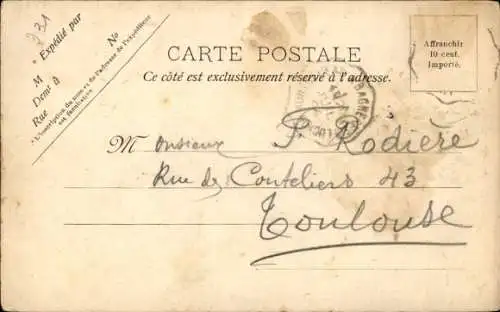 331
Expédié par
M
Demt à
Rue
No
*L'inscription du nom et de l'adresse de l'expéditeur
est facultative
CARTE POSTALE
Ce côté est exclusivement réservé à l'adresse.
Affranchir
10 cent.
Imporié.
BAGNE
Monsieur P. Rodière
Rue des Couteliers 43
Toulouse